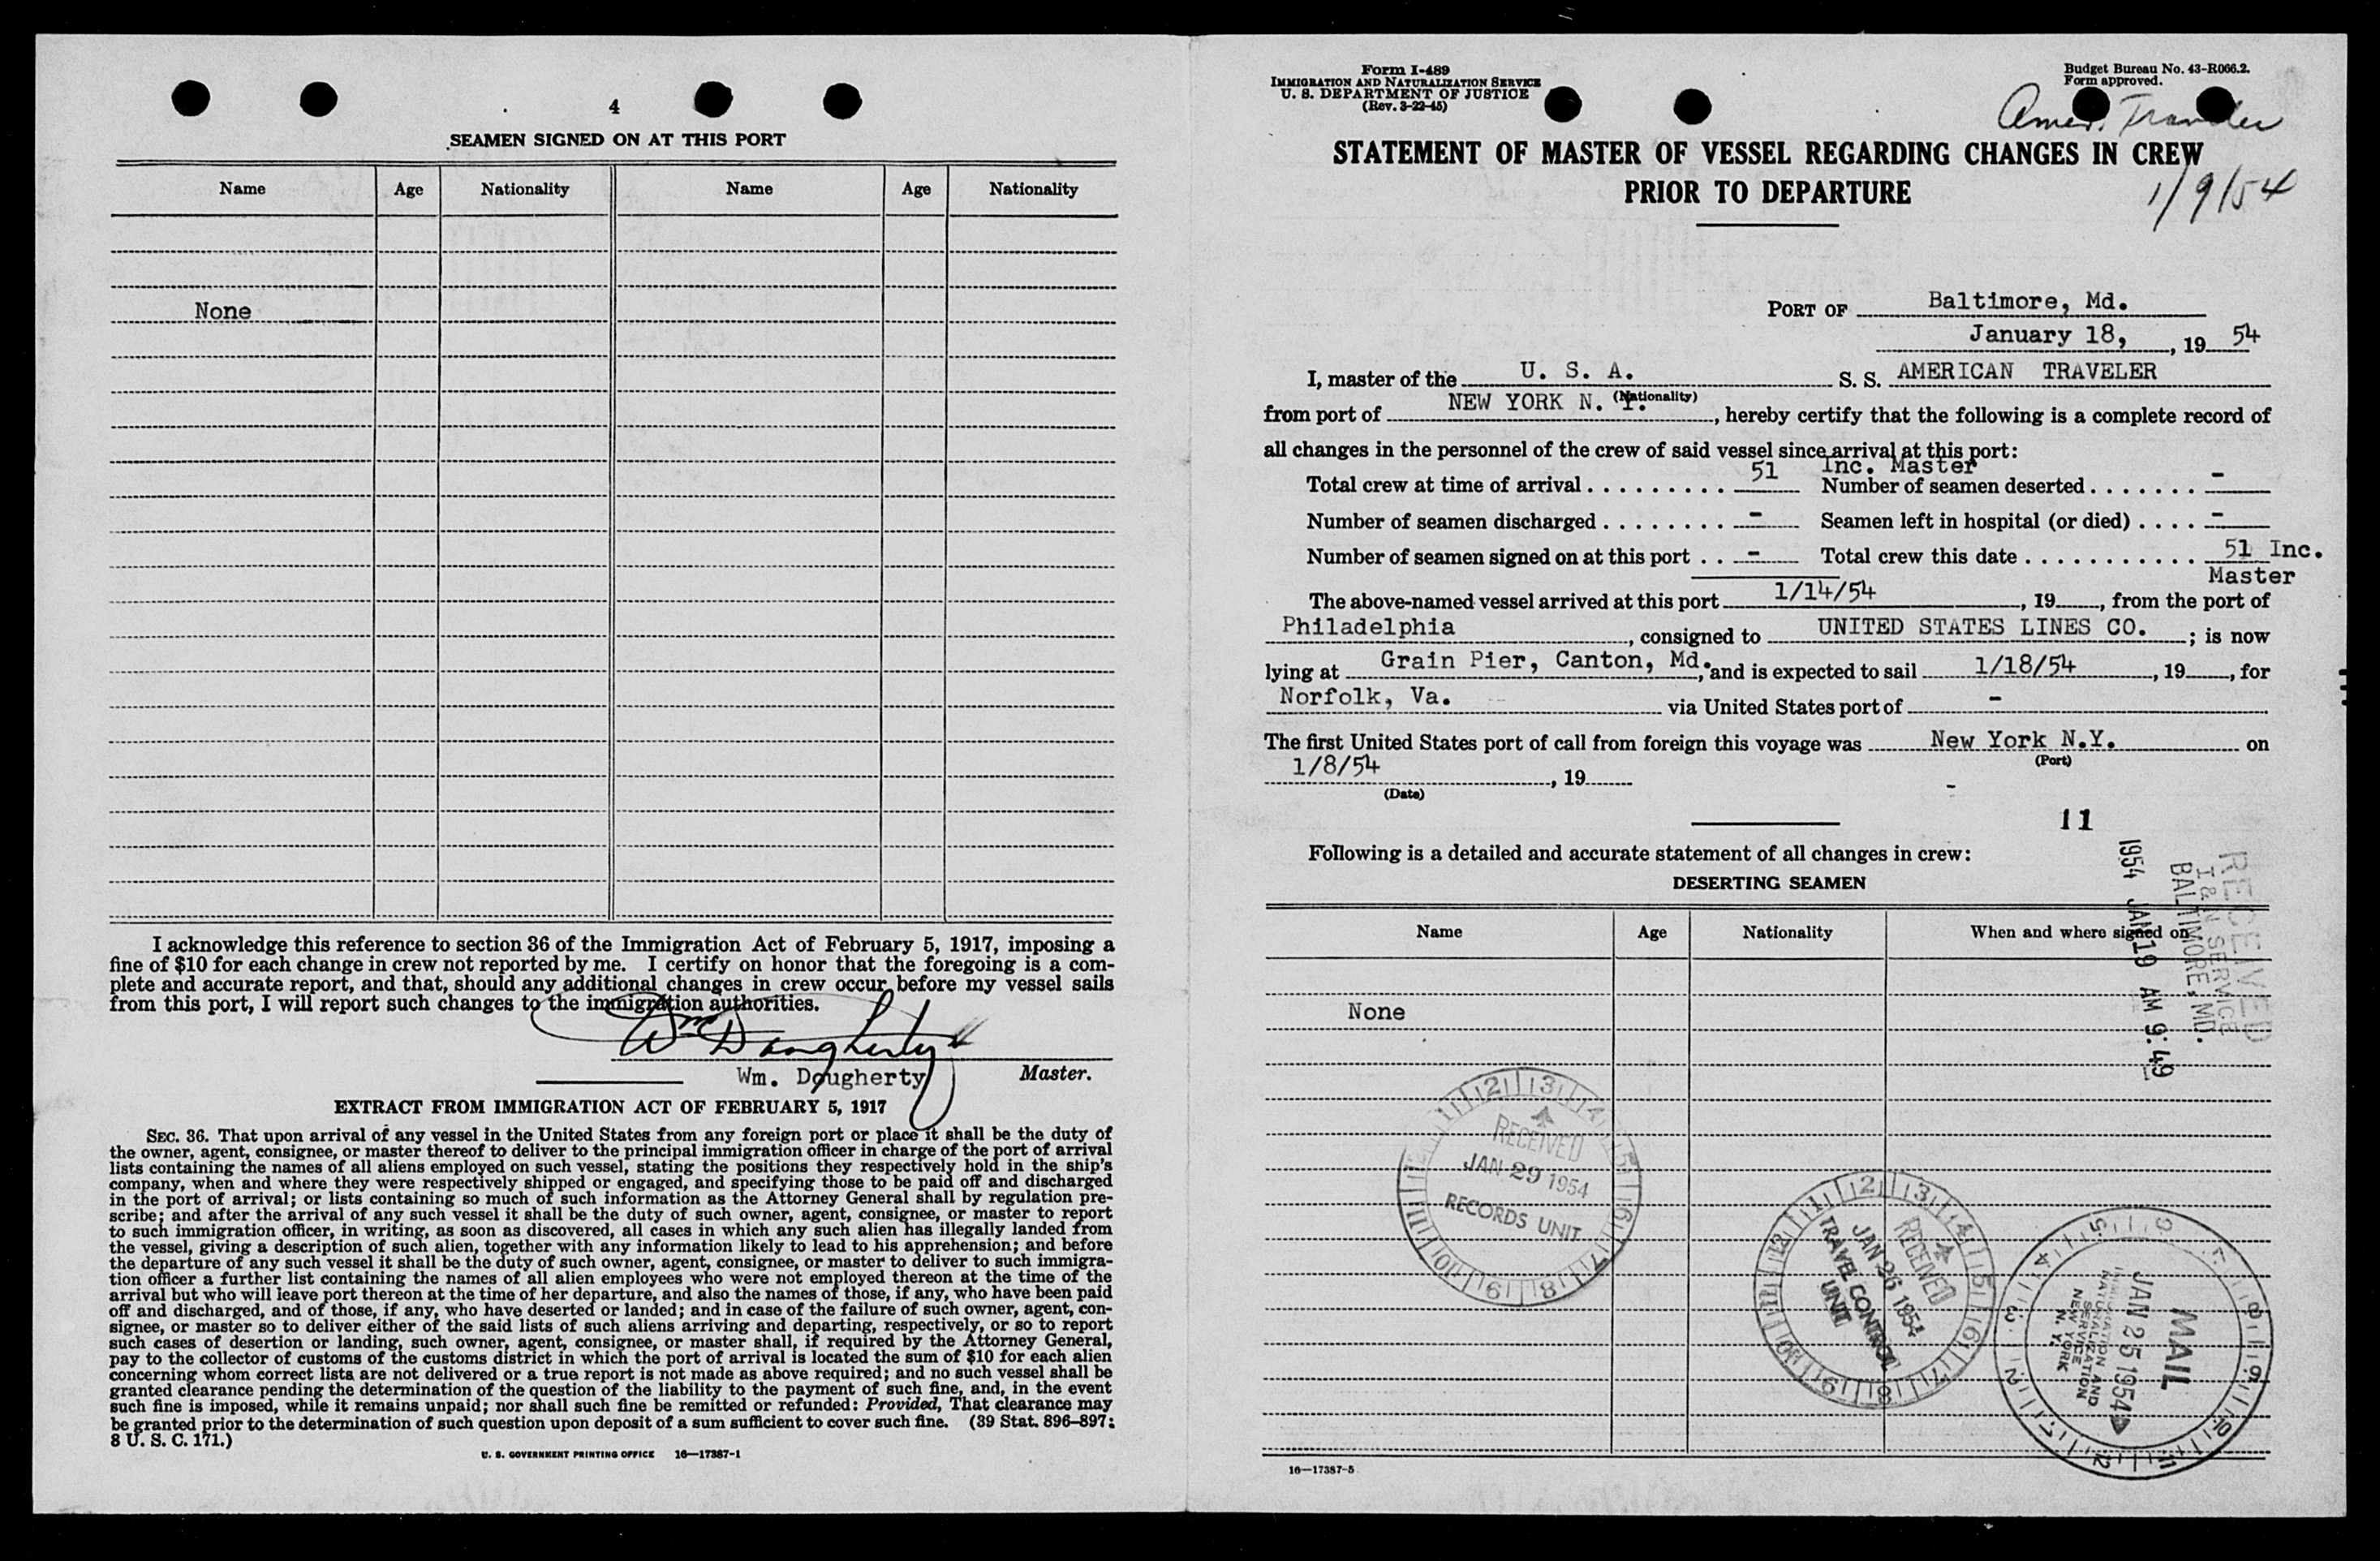 4
SEAMEN SIGNED ON AT THIS PORT
Name Age Nationality Name Age Nationality
None
I acknowledge this reference to section 36 of the Immigration Act of February 5, 1917, imposing a
fine of $10 for each change in crew not reported by me. I certify on honor that the foregoing is a com-
plete and accurate report, and that, should any additional changes in crew occur before my vessel sails
from this port, I will report such changes to the immigration authorities.
Wm Dougherty
Wm. Dougherty Master.
EXTRACT FROM IMMIGRATION ACT OF FEBRUARY 5, 1917
SEC. 36. That upon arrival of any vessel in the United States from any foreign port or place it shall be the duty of
the owner, agent, consignee, or master thereof to deliver to the principal immigration officer in charge of the port of arrival
lists containing the names of all aliens employed on such vessel, stating the positions they respectively hold in the ship's
company, when and where they were respectively shipped or engaged, and specifying those to be paid off and discharged
in the port of arrival; or lists containing so much of such information as the Attorney General shall by regulation pre-
scribe; and after the arrival of any such vessel it shall be the duty of such owner, agent, consignee, or master to report
to such immigration officer, in writing, as soon as discovered, all cases in which any such alien has illegally landed from
the vessel, giving a description of such alien, together with any information likely to lead to his apprehension; and before
the departure of any such vessel it shall be the duty of such owner, agent, consignee, or master to deliver to such immigra-
tion officer a further list containing the names of all alien employees who were not employed thereon at the time of the
arrival but who will leave port thereon at the time of her departure, and also the names of those, if any, who have been paid
off and discharged, and of those, if any, who have deserted or landed; and in case of the failure of such owner, agent, con-
signee, or master so to deliver either of the said lists of such aliens arriving and departing, respectively, or so to report
such cases of desertion or landing, such owner, agent, consignee, or master shall, if required by the Attorney General,
pay to the collector of customs of the customs district in which the port of arrival is located the sum of $10 for each alien
concerning whom correct lists are not delivered or a true report is not made as above required; and no such vessel shall be
granted clearance pending the determination of the question of the liability to the payment of such fine, and, in the event
such fine is imposed, while it remains unpaid; nor shall such fine be remitted or refunded: Provided, That clearance may
be granted prior to the determination of such question upon deposit of a sum sufficient to cover such fine. (39 Stat. 896–897;
8 U. S. C. 171.)
U. S. GOVERNMENT PRINTING OFFICE 16—17387-1
Form I-489
IMMIGRATION AND NATURALIZATION SERVICE
U. S. DEPARTMENT OF JUSTICE
(Rev. 3-22-45)
Budget Bureau No. 43-R066.2.
Form approved.
Amer. Traveler
STATEMENT OF MASTER OF VESSEL REGARDING CHANGES IN CREW
PRIOR TO DEPARTURE
1/9/54
PORT OF Baltimore, Md.
January 18, , 19 54
I, master of the U. S. A. S. S. AMERICAN TRAVELER
(Nationality)
from port of NEW YORK N. Y. , hereby certify that the following is a complete record of
all changes in the personnel of the crew of said vessel since arrival at this port:
Inc. Master
Total crew at time of arrival . . . . . . . . . 51 Number of seamen deserted . . . . . . . -
Number of seamen discharged . . . . . . . . - Seamen left in hospital (or died) . . . . -
Number of seamen signed on at this port . . - Total crew this date . . . . . . . . . . . . 51 Inc.
Master
The above-named vessel arrived at this port 1/14/54 , 19 , from the port of
Philadelphia , consigned to UNITED STATES LINES CO. ; is now
lying at Grain Pier, Canton, Md. , and is expected to sail 1/18/54 , 19 , for
Norfolk, Va. via United States port of -
The first United States port of call from foreign this voyage was New York N.Y. on
(Port)
1/8/54 , 19
(Date)
11
Following is a detailed and accurate statement of all changes in crew:
DESERTING SEAMEN
Name Age Nationality When and where signed on
None
RECEIVED
I & N SERVICE
BALTIMORE, MD.
1954 JAN 19 AM 9:49
RECEIVED
JAN 29 1954
RECORDS UNIT
RECEIVED
JAN 26 1954
TRAVEL CONTROL
UNIT
MAIL
JAN 25 1954
IMMIGRATION AND
NATURALIZATION
SERVICE
NEW YORK
N. Y.
16—17387-5